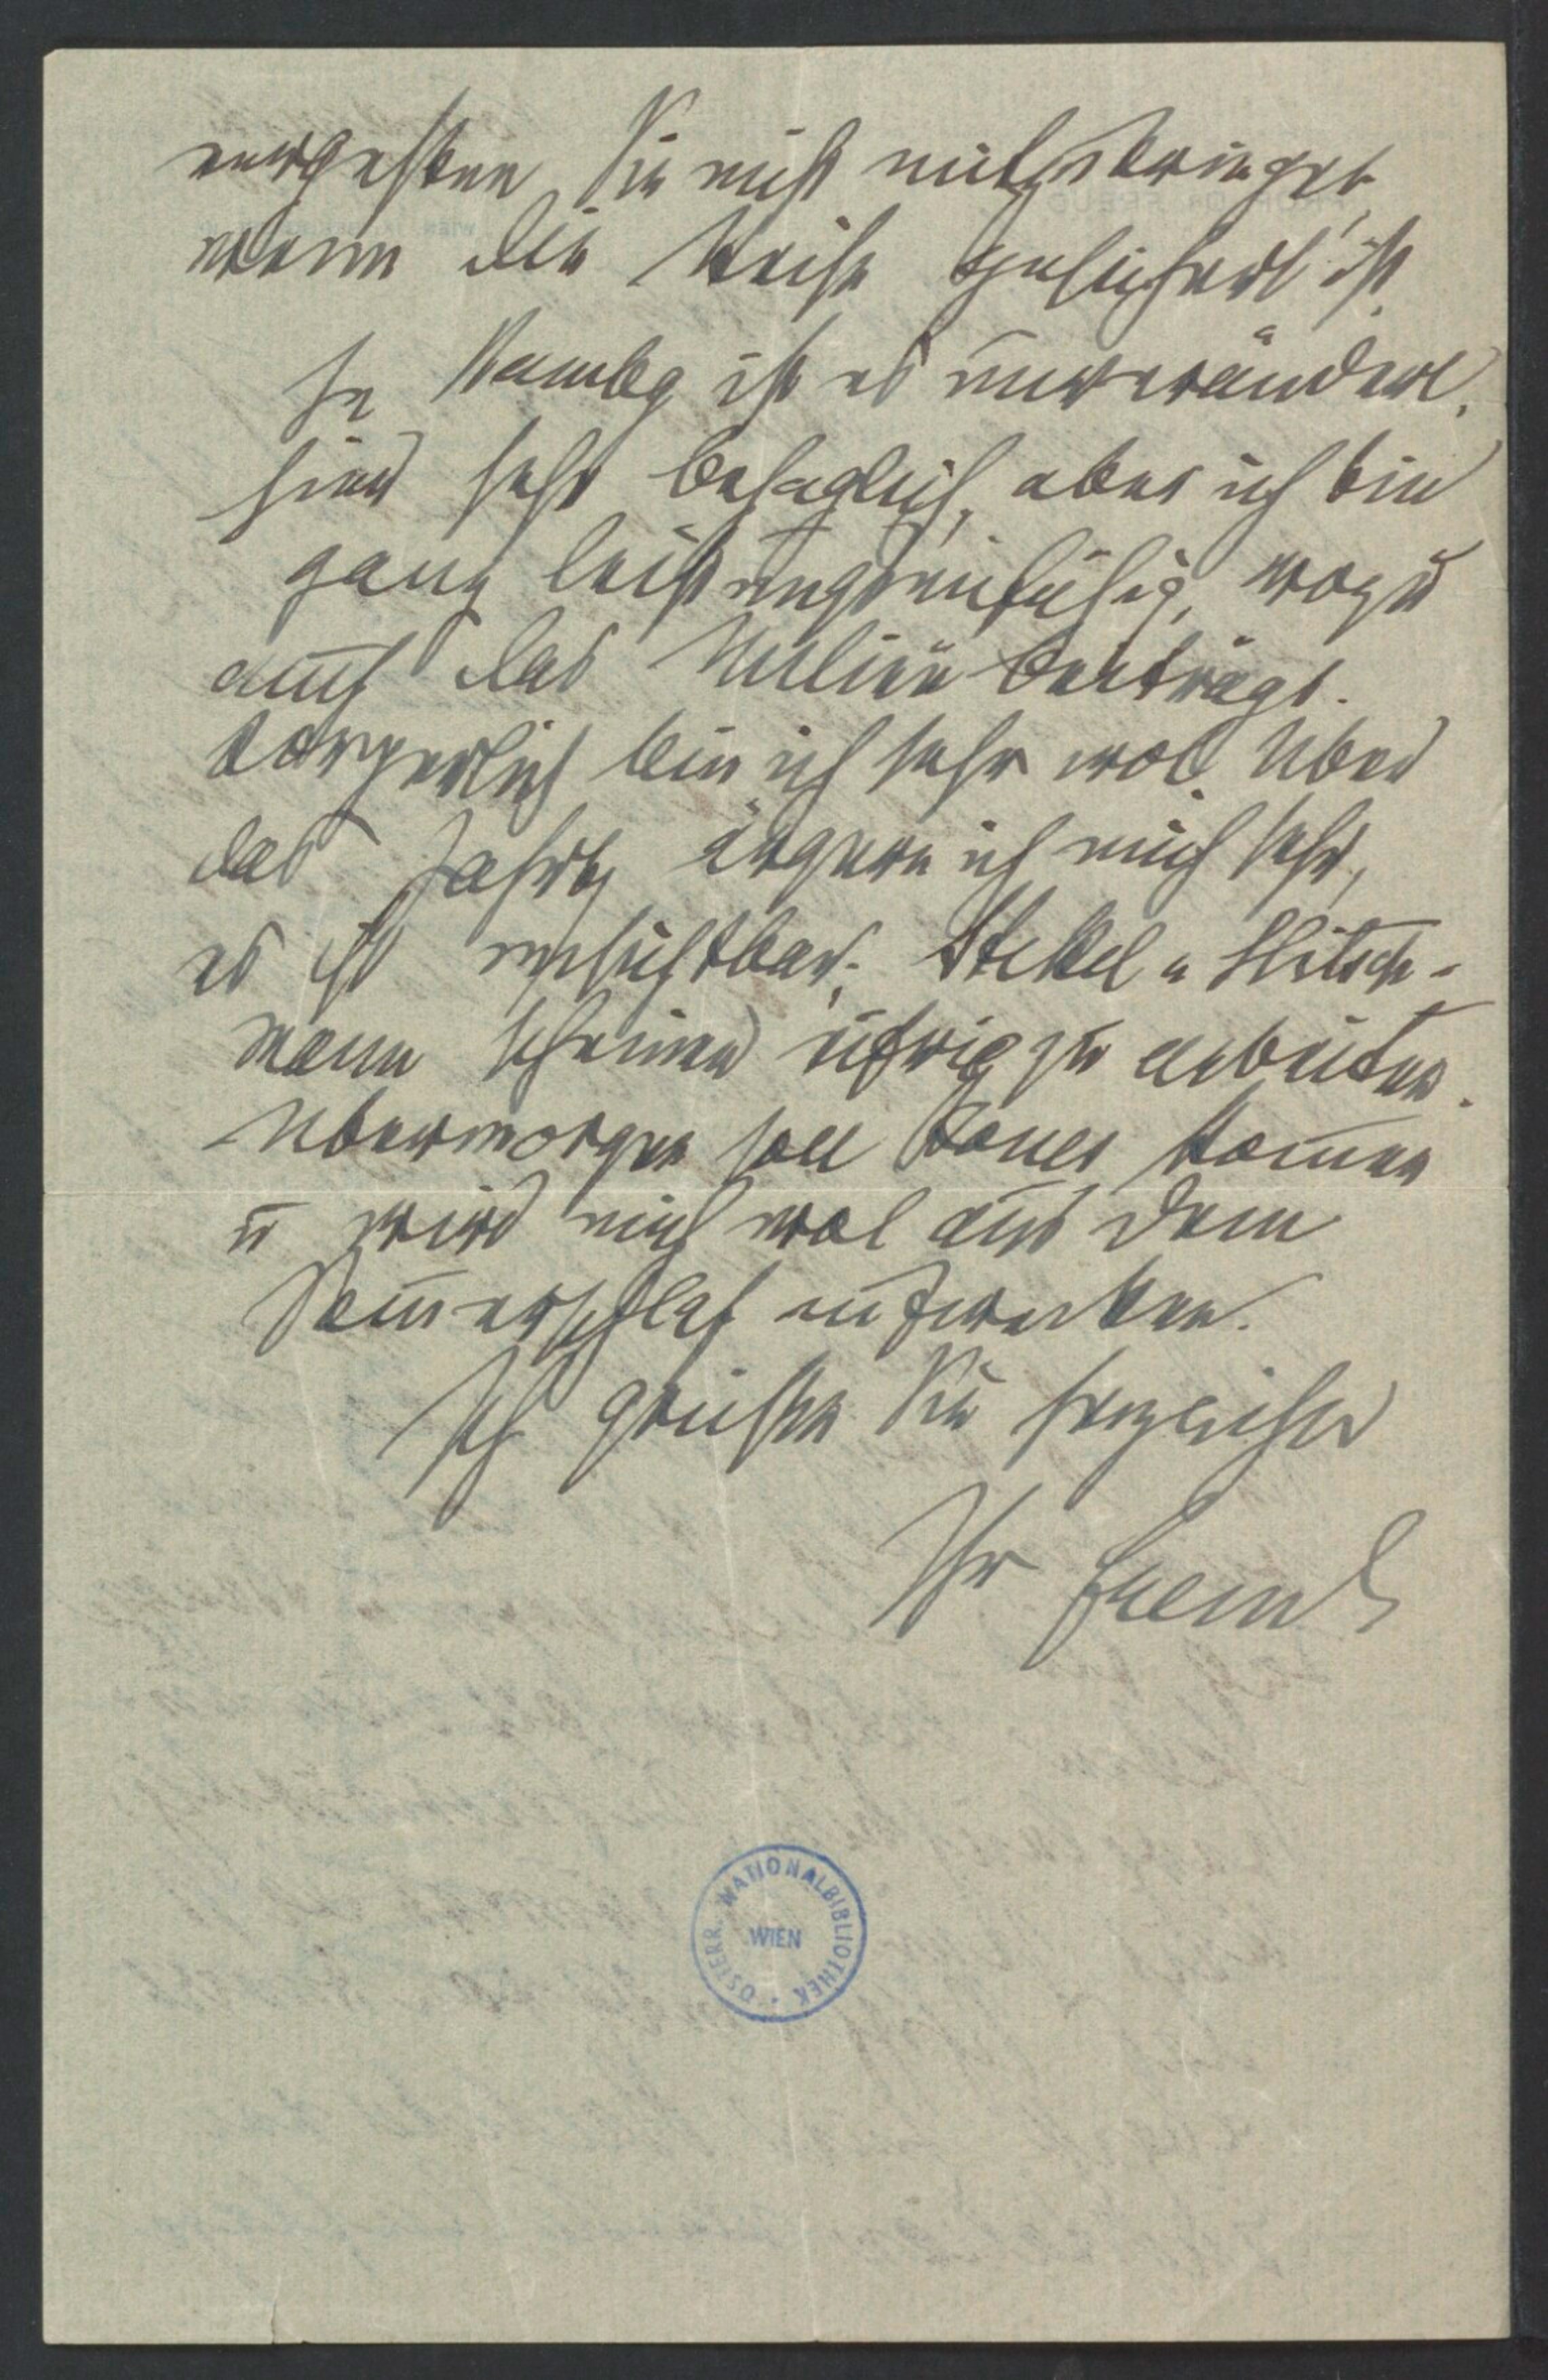 vergessen Sie nicht mitzubringen,
wenn die Reise gesichert ist.
In Hambg ist es unverändert.
sind sehr behaglich, aber ich bin
ganz leistungsunfähig, wozu
auch das Milieu beiträgt.
Körperlich bin ich sehr wol. Über
das Jahrb ärgere ich mich sehr,
es ist unsichtbar. Stekel u Hitsch-
mann scheinen eifrig zu arbeiten.
Übermorgen soll Jones kommen
u wird mich wol aus dem
Sommerschlaf aufwecken.
Ich grüße Sie herzlich
Ihr Freud
ÖSTERR. NATIONALBIBLIOTHEK
WIEN